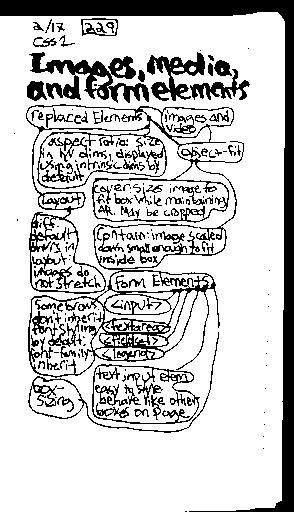 2/17 229
CSS 1
Images, media,
and form elements
replaced Elements
images and
video
aspect ratio: size
in IV dims, displayed
using intrinsic dims by
default
object-fit
cover: sizes image to
fit box while maintaining
AR. May be cropped
Layout
diff
default
behavs in
layout.
images do
not stretch
contain: image scaled
down small enough to fit
inside box
form Elements
Some brows
don't inherit
font styling
by default.
font-family:
inherit
<input>
<textarea>
<fieldset>
<legend>
box-
sizing
text input elem
easy to style
behave like other
boxes on page